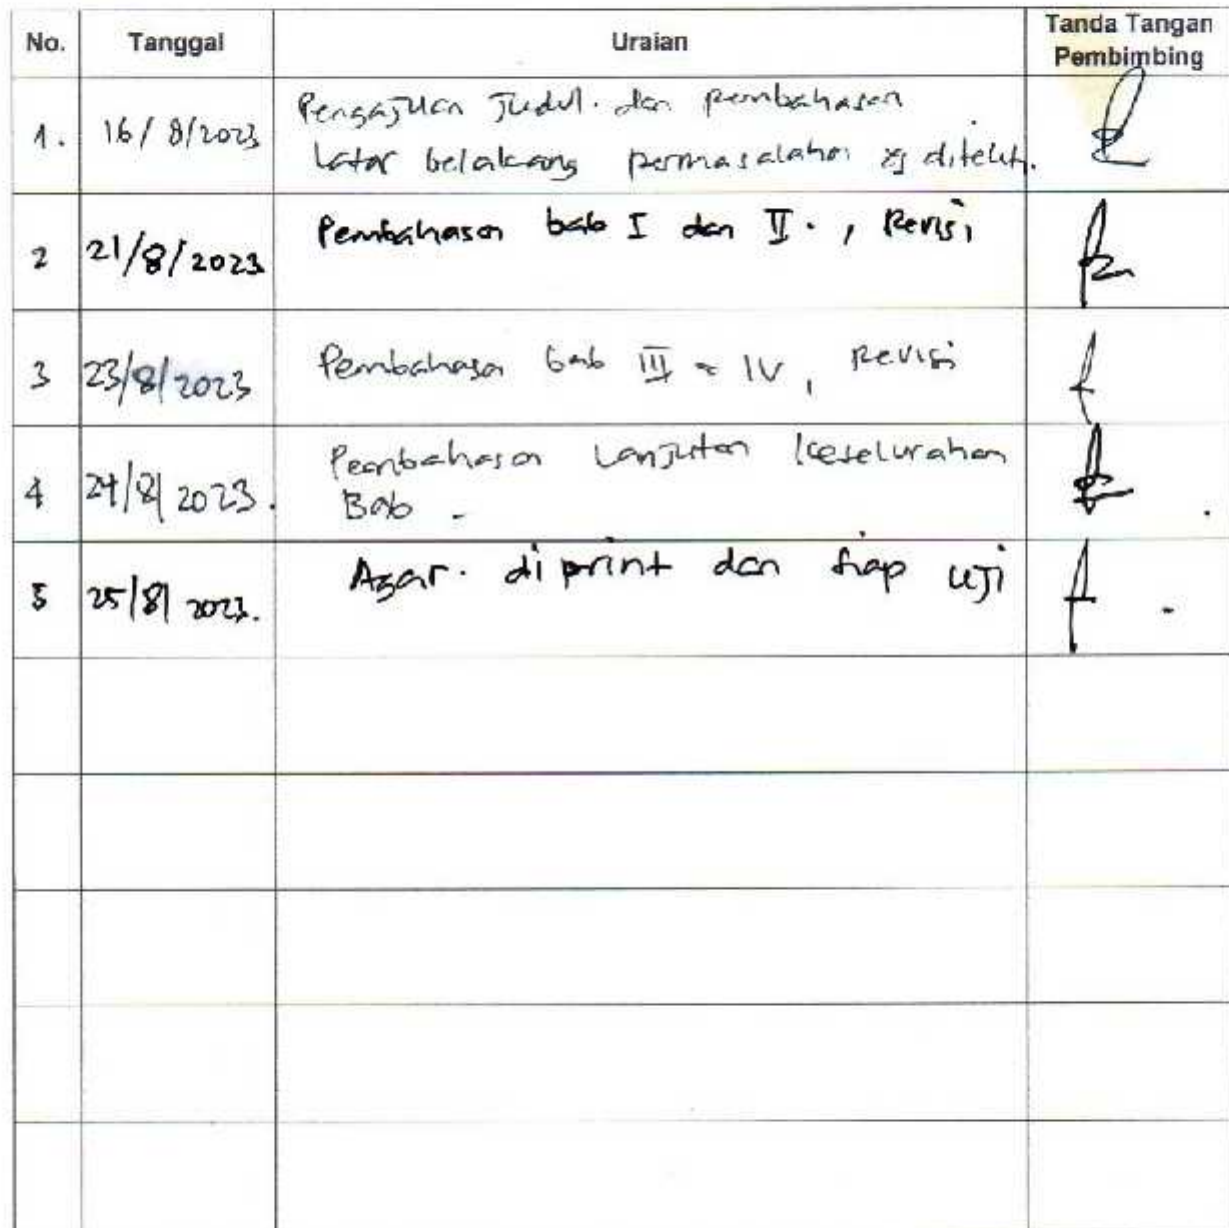 No. Tanggal Uraian Tanda Tangan
Pembimbing
1. 16/8/2023 Pengajuan Judul. dan pembahasan
latar belakang permasalahan yg diteliti.
2 21/8/2023 Pembahasan bab I dan II. , Revisi
3 23/8/2023 Pembahasan bab III & IV, Revisi
4 24/8/2023. Pembahasan Lanjutan keselurahan
Bab.
5 25/8/2023. Agar. diprint dan siap uji